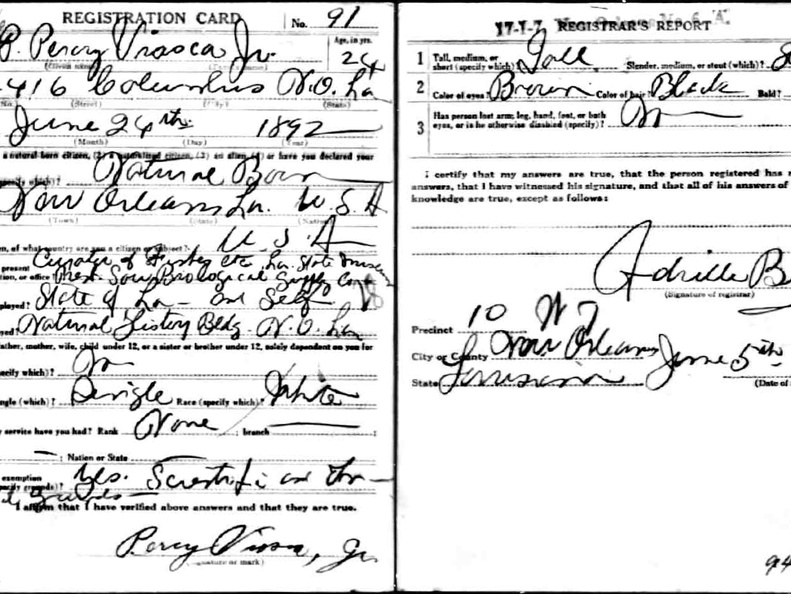 REGISTRATION CARD No. 91
P. Percy Viosca Jr. Age, in yrs. 24
(Given name) (Family name)
416 Columbus N.O. La
No. (Street) (City) (State)
June 24th 1892
(Month) (Day) (Year)
a natural-born citizen, (2) a naturalized citizen, (3) an alien, (4) or have you declared your
specify which)? Natural Born
New Orleans La. U.S.A
(Town) (State) (Nation)
en, of what country are you a citizen or subject? U.S.A
present Curator of Fishes etc La. State Museum
tion, or office? Pres. Sou. Biological Supply Co
ployed? State of La — and Self
yed Natural History Bldg. N.O. La
father, mother, wife, child under 12, or a sister or brother under 12, solely dependent on you for
pecify which)?
ngle (which)? Single Race (specify which)? White
y service have you had? Rank None ; branch ;
; Nation or State
exemption
pecify grounds)? Yes. Scientific and
grounds
I affirm that I have verified above answers and that they are true.
Percy Viosca, Jr
(Signature or mark)
17-1-7 A
REGISTRAR'S REPORT
1 Tall, medium, or short (specify which)? Tall Slender, medium, or stout (which)?
2 Color of eyes? Brown Color of hair? Black Bald?
3 Has person lost arm, leg, hand, foot, or both
eyes, or is he otherwise disabled (specify)?
I certify that my answers are true, that the person registered has
answers, that I have witnessed his signature, and that all of his answers of
knowledge are true, except as follows:
(Signature of registrar)
Precinct 10 W 7
City or County New Orleans June 5th
State Louisiana (Date of